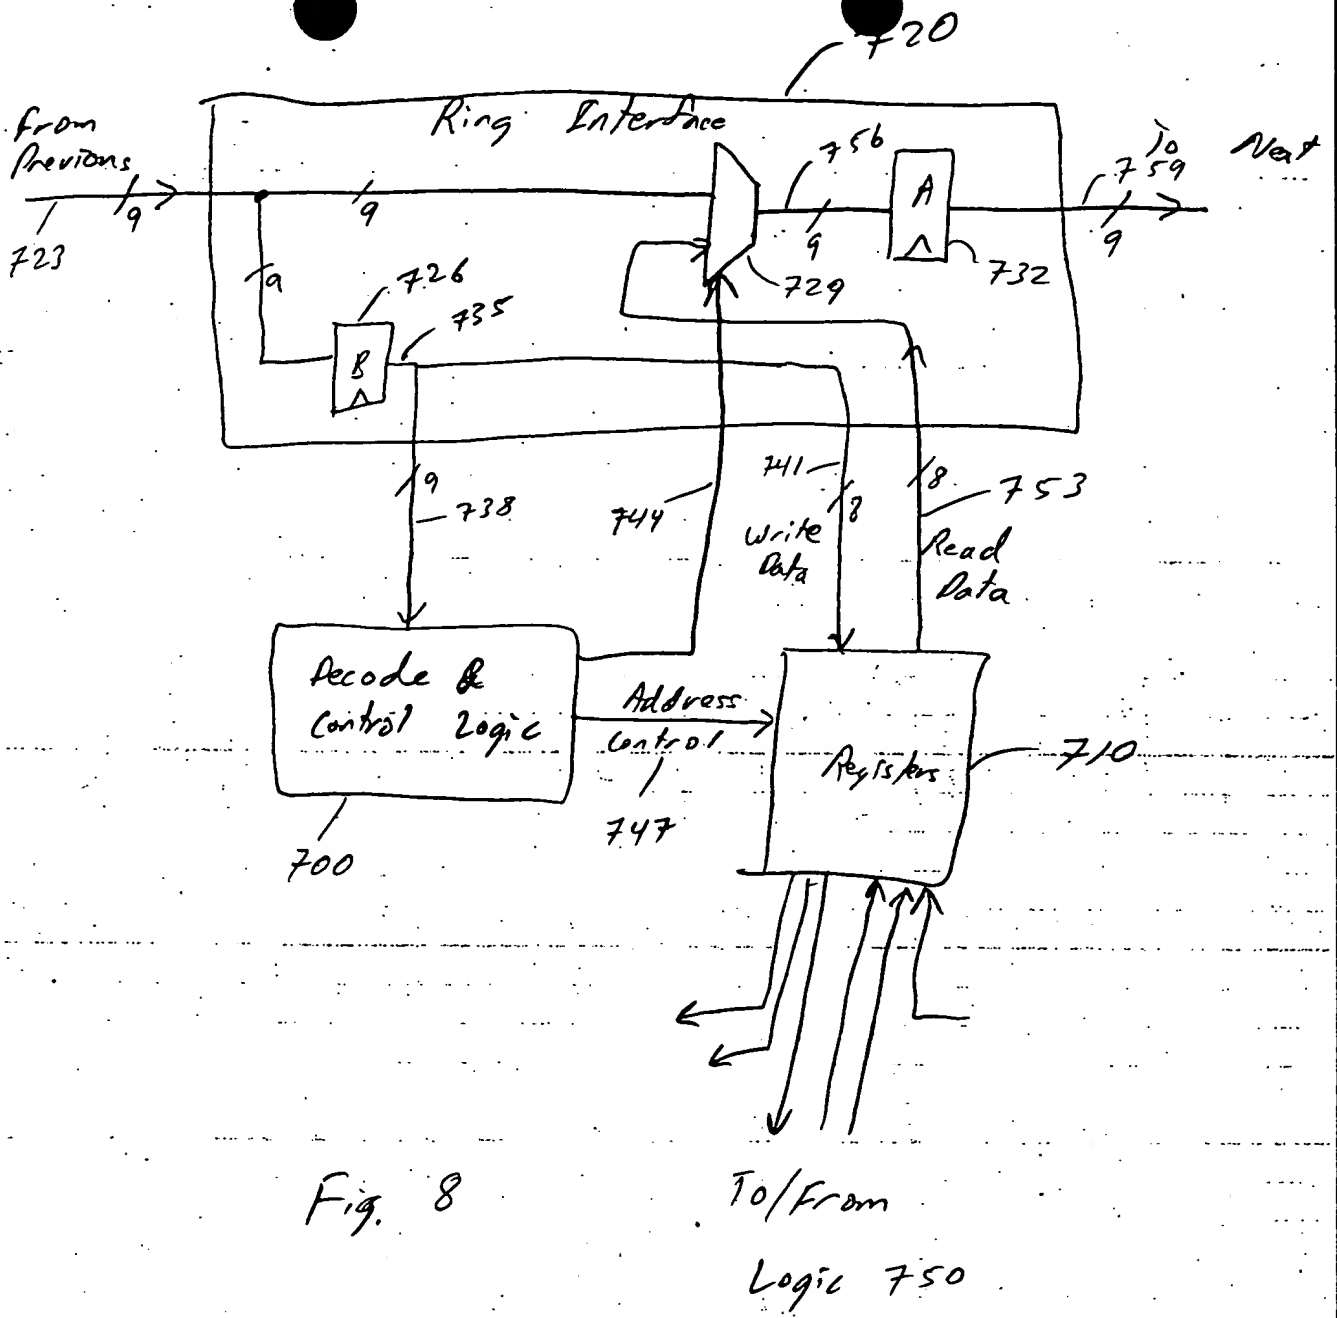 720
Ring Interface
From
Previous
9
723
9
756
A
To
759
Next
9
9
732
729
9
726
735
B
9
738
744
741
8
Write
Data
8
753
Read
Data
Decode &
Control Logic
Address
Control
747
Registers
710
700
Fig. 8
To/From
Logic 750